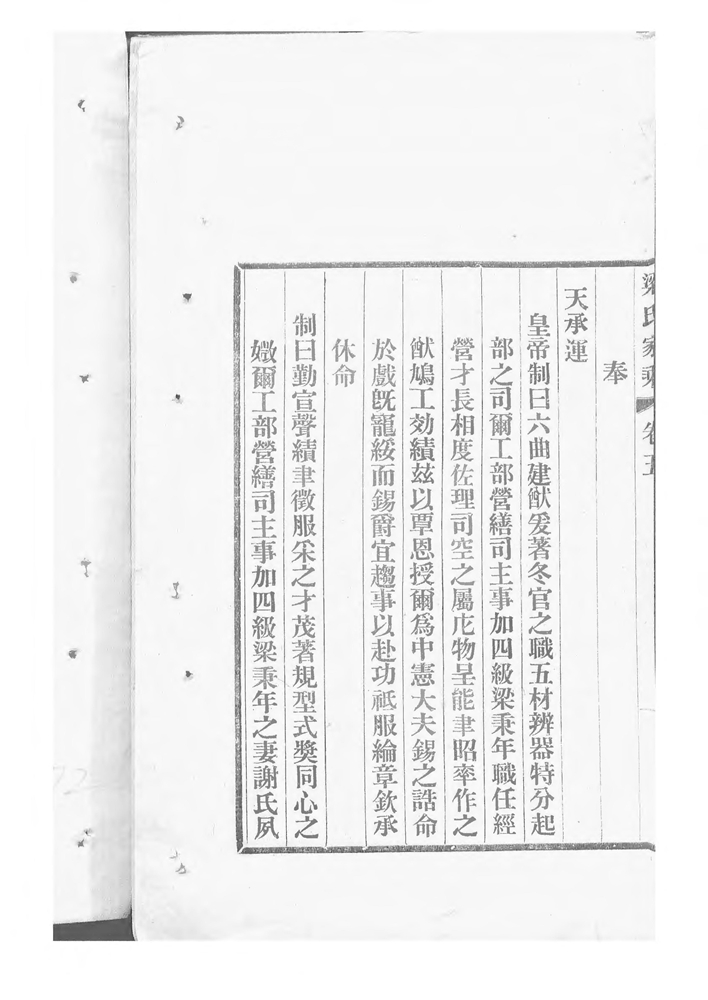 梁氏家乘 卷五
奉
天承運
皇帝制曰六曲建猷爰著冬官之職五材辨器特分起
部之司爾工部營繕司主事加四級梁秉年職任經
營才長相度佐理司空之屬庀物呈能聿昭率作之
猷鳩工効績玆以覃恩授爾爲中憲大夫錫之誥命
於戲旣寵綏而錫爵宜趨事以赴功祗服綸章欽承
休命
制曰勤宣聲績聿徵服采之才茂著規型式獎同心之
媺爾工部營繕司主事加四級梁秉年之妻謝氏夙